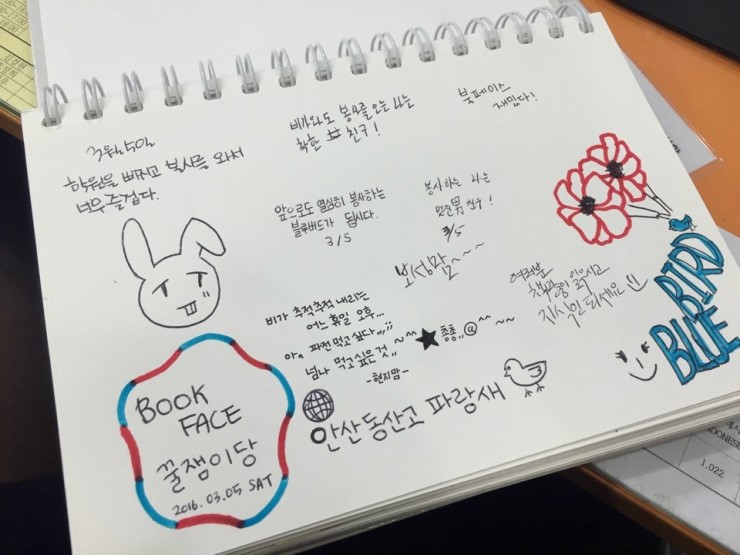 3월 5일
학원을 빠지고 봉사를 와서
너무 즐겁다.
비가와도 봉사를 오는 나는
착한 친구!
북페이스
재밌다!
앞으로도 열심히 봉사하는
블루버드가 됩시다.
3/5
봉사하는 나는
멋진 男 친구!
3/5
보성맘~~~
여러분
책 많이 읽으시고
지식인 되세요
비가 추적추적 내리는
어느 휴일 오후...
아~ 파전 먹고 싶다...
넘나 먹고싶은 것
-현지맘-
★ 총총,,@^^ ~~
BLUE BIRD
안산동산고 파랑새
BOOK
FACE
꿀잼이당
2016.03.05 SAT
1.022